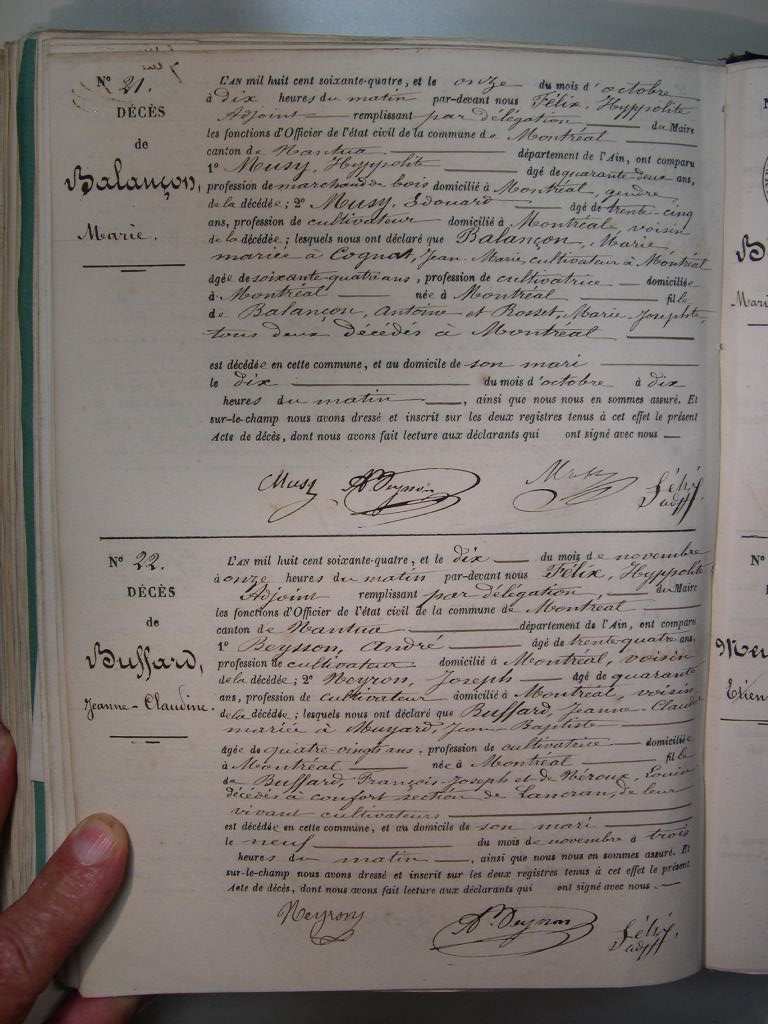 N° 21.
DÉCÈS
de
Balançon,
Marie.
L'AN mil huit cent soixante-quatre, et le onze du mois d'octobre
à dix heures du matin par-devant nous Félix, Hyppolite
Adjoint remplissant par délégation du Maire
les fonctions d'Officier de l'état civil de la commune de Montréal
canton de Nantua département de l'Ain, ont comparu
1° Musy, Hyppolite âgé de quarante-deux ans,
profession de marchand de bois domicilié à Montréal, gendre
de la décédée; 2° Musy, Edouard âgé de trente-cinq
ans, profession de cultivateur domicilié à Montréale, voisin
de la décédée; lesquels nous ont déclaré que Balançon, Marie,
mariée à Cognat, Jean-Marie, cultivateur à Montréal
âgée de soixante-quatre ans, profession de cultivatrice domiciliée
à Montréal née à Montréal fille
de Balançon, Antoine et Rosset, Marie-Josephte,
tous deux décédés à Montréal
est décédée en cette commune, et au domicile de son mari
le dix du mois d'octobre à dix
heures du matin, ainsi que nous nous en sommes assuré. Et
sur-le-champ nous avons dressé et inscrit sur les deux registres tenus à cet effet le présent
Acte de décès, dont nous avons fait lecture aux déclarants qui ont signé avec nous
Musy Musy Félix
adjt.
N° 22.
DÉCÈS
de
Buffard,
Jeanne-Claudine.
L'AN mil huit cent soixante-quatre, et le dix du mois de novembre
à onze heures du matin par-devant nous Félix, Hyppolite
Adjoint remplissant par délégation du Maire
les fonctions d'Officier de l'état civil de la commune de Montréal
canton de Nantua département de l'Ain, ont comparu
1° Beysson, André âgé de trente-quatre ans,
profession de cultivateur domicilié à Montréal, voisin
de la décédée; 2° Neyron, Joseph âgé de quarante
ans, profession de cultivateur domicilié à Montréal, voisin
de la décédée; lesquels nous ont déclaré que Buffard, Jeanne-Claudine
mariée à Muyard, Jean-Baptiste
âgée de quatre-vingts ans, profession de cultivatrice domiciliée
à Montréal née à Montréal fille
de Buffard, François-Joseph et de Néroux, Louise
décédés à confort section de Lancran, de leur
vivant cultivateurs
est décédée en cette commune, et au domicile de son mari
le neuf du mois de novembre à trois
heures du matin, ainsi que nous nous en sommes assuré. Et
sur-le-champ nous avons dressé et inscrit sur les deux registres tenus à cet effet le présent
Acte de décès, dont nous avons fait lecture aux déclarants qui ont signé avec nous.
Neyron Félix.
adjt